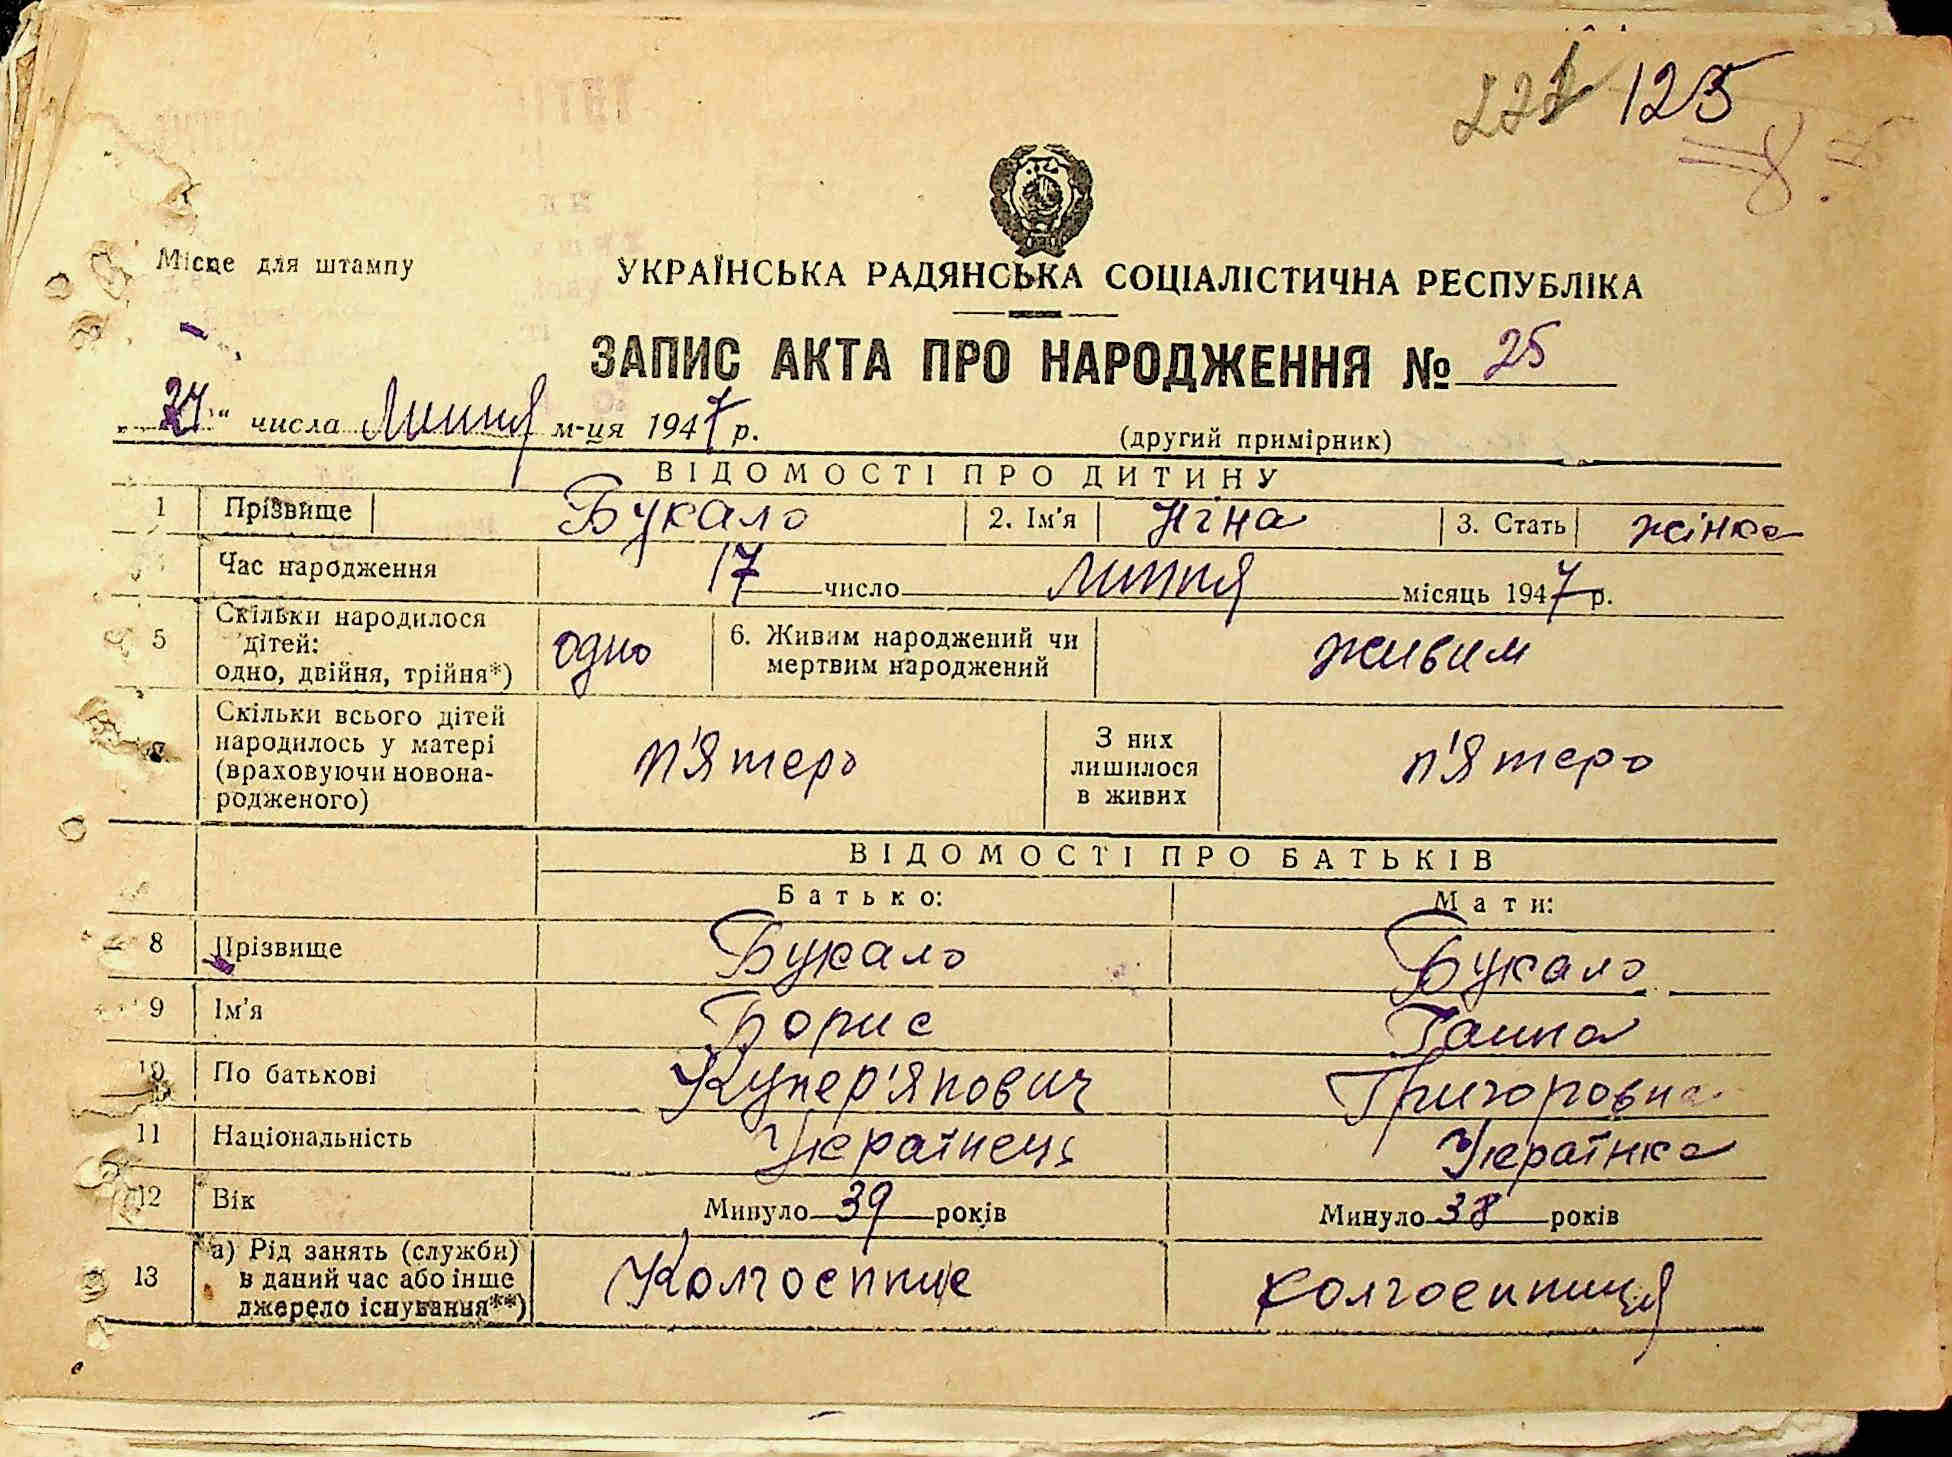 125
Місце для штампу
УКРАЇНСЬКА РАДЯНСЬКА СОЦІАЛІСТИЧНА РЕСПУБЛІКА
ЗАПИС АКТА ПРО НАРОДЖЕННЯ № 25
"27" числа Липня м-ця 1947 р.
(другий примірник)
ВІДОМОСТІ ПРО ДИТИНУ
1 Прізвище Букало 2. Ім'я Ніна 3. Стать жінка
Час народження 17 число Липня місяць 1947 р.
5 Скільки народилося дітей: одно, двійня, трійня*) одно 6. Живим народжений чи мертвим народжений живим
Скільки всього дітей народилось у матері (враховуючи новона-родженого) п'ятеро З них лишилося в живих п'ятеро
ВІДОМОСТІ ПРО БАТЬКІВ
Батько: Мати:
8 Прізвище Букало Букало
9 Ім'я Борис Ганна
10 По батькові Купер'янович Григоровна
11 Національність Українець Українка
12 Вік Минуло 39 років Минуло 38 років
13 а) Рід занять (служби) в даний час або інше джерело існування**) Колгоспник колгоспниця